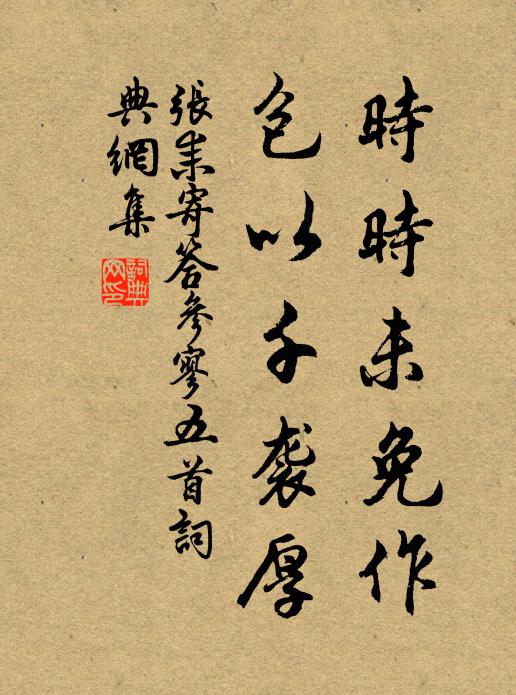 時時未免作
包以千襲厚
張耒寄答參寥五首詞
典網集
詞典
网印